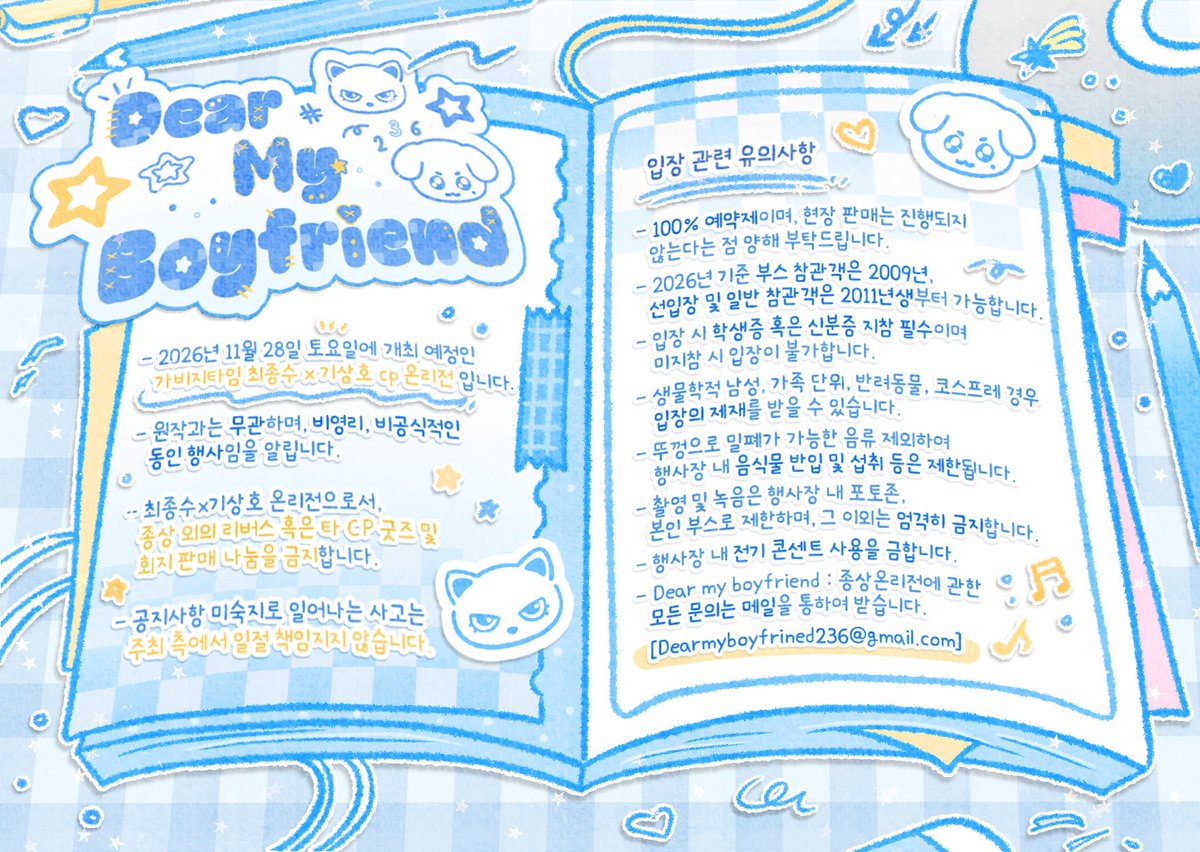 Dear
#
236
My
Boyfriend
- 2026년 11월 28일 토요일에 개최 예정인
가비지타임 최종수 x 기상호 cp 온리전 입니다.
- 원작과는 무관하며, 비영리, 비공식적인
동인 행사임을 알립니다.
-- 최종수x기상호 온리전으로서,
종상 외의 리버스 혹은 타 CP 굿즈 및
회지 판매 나눔을 금지합니다.
- 공지사항 미숙지로 일어나는 사고는
주최 측에서 일절 책임지지 않습니다.
입장 관련 유의사항
- 100% 예약제이며, 현장 판매는 진행되지
않는다는 점 양해 부탁드립니다.
- 2026년 기준 부스 참관객은 2009년,
선입장 및 일반 참관객은 2011년생부터 가능합니다.
- 입장 시 학생증 혹은 신분증 지참 필수이며
미지참 시 입장이 불가합니다.
- 생물학적 남성, 가족 단위, 반려동물, 코스프레 경우
입장의 제재를 받을 수 있습니다.
- 뚜껑으로 밀폐가 가능한 음류 제외하여
행사장 내 음식물 반입 및 섭취 등은 제한됩니다.
- 촬영 및 녹음은 행사장 내 포토존,
본인 부스로 제한하며, 그 이외는 엄격히 금지합니다.
- 행사장 내 전기 콘센트 사용을 금합니다.
- Dear my boyfriend : 종상온리전에 관한
모든 문의는 메일을 통하여 받습니다.
[Dearmyboyfrined236@gmail.com]